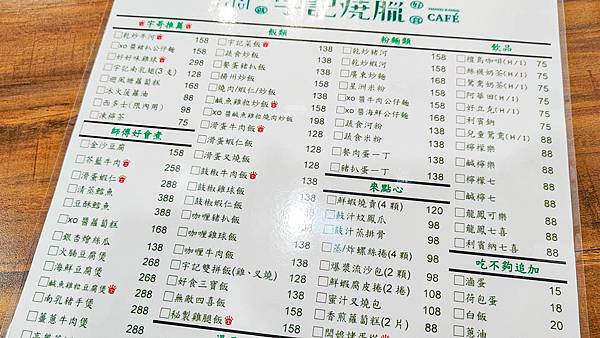 宇記燒臘
CAFÉ
宇哥推薦
乾炒牛河 158
xo醬豬扒公仔麵 158
好好味雞球 298
宇記南乳翅(3支) 128
避風塘蘿蔔糕 168
冰火菠蘿油 88
西多士(限內用) 98
凍檸茶 75
師傅好會煮
金沙豆腐 158
芥藍牛肉 258
滑蛋蝦仁 288
清蒸鱈魚
豆酥鱈魚
xo醬蘿蔔糕 168
銀杏燴絲瓜 138
火腩豆腐煲 268
海鮮豆腐煲 268
鹹魚雞粒豆腐煲
南乳豬手煲 288
薑蔥牛肉煲 288
飯類
宇記菜飯
蔬食炒飯
餐蛋豬扒飯
揚州炒飯
燒肉/蝦仁/炒飯
鹹魚雞粒炒飯
xo醬鹹魚雞粒燒肉炒飯
滑蛋牛肉飯
滑蛋蝦仁飯
滑蛋叉燒飯
豉椒牛肉飯
豉椒蝦仁飯
豉椒雞球飯
咖喱豬扒飯
咖喱雞球飯
咖喱牛肉飯 138
宇記雙拼飯(雞、叉燒) 138
好食三寶飯 128
無敵四喜飯 138
秘製雞腿飯 158
粉麵類
乾炒豬河 158
乾炒蝦河 158
廣東炒麵 158
星洲米粉 158
xo醬牛肉公仔麵
xo醬海鮮公仔麵
蔬食河粉 138
蔬食米粉 138
餐肉蛋一丁 138
豬扒蛋一丁 138
來點心
鮮蝦燒賣(4顆) 120
豉汁炆鳳爪 98
豉汁蒸排骨 98
蒸/炸螺絲捲(4顆) 98
爆漿流沙包(2顆) 98
鮮蝦腐皮捲(2捲) 108
蜜汁叉燒包 108
香煎蘿蔔糕(2片) 88
飲品
檀島咖啡(H/I) 75
絲襪奶茶(H/I) 75
鴛鴦奶茶(H/I) 75
阿華田(H/I) 75
好立克(H/I) 75
利賓鈉 75
兒童鴛鴦(H/I) 88
檸檬樂 88
鹹檸樂 88
檸檬七 88
鹹檸七 88
龍鳳可樂 88
龍鳳七喜 88
利賓納七喜 88
吃不夠追加
滷蛋 15
荷包蛋 18
白飯 20
蔥油